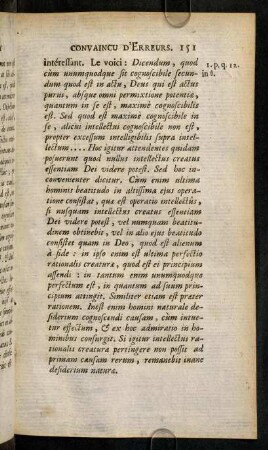 CONVAINCU D'ERREURS. 151
intéressant. Le voici : Dicendum, quod
1. p. q. 12.
in 6.
cùm unumquodque sit cognoscibile secun-
dum quod est in actu, Deus qui est actus
purus, absque omni permixtione potentiæ,
quantum in se est, maximè cognoscibilis
est. Sed quod est maximè cognoscibile in
se, alicui intellectui cognoscibile non est,
propter excessum intelligibilis supra intel-
lectum.... Hoc igitur attendentes quidam
posuerunt quod nullus intellectus creatus
essentiam Dei videre potest. Sed hoc in-
convenienter dicitur. Cùm enim ultima
hominis beatitudo in altissima ejus opera-
tione consistat, quæ est operatio intellectûs,
si nusquam intellectus creatus essentiam
Dei videre potest, vel numquam beatitu-
dinem obtinebit, vel in alio ejus beatitudo
consistet quam in Deo, quod est alienum
à fide : in ipso enim est ultima perfectio
rationalis creaturæ, quod est ei principium
essendi : in tantum enim unumquodque
perfectum est, in quantum ad suum prin-
cipium attingit. Similiter etiam est præter
rationem. Inest enim homini naturale de-
siderium cognoscendi causam, cùm intue-
tur effectum, & ex hoc admiratio in ho-
minibus consurgit. Si igitur intellectus ra-
tionalis creaturæ pertingere non possit ad
primam causam rerum, remanebit inane
desiderium naturæ.